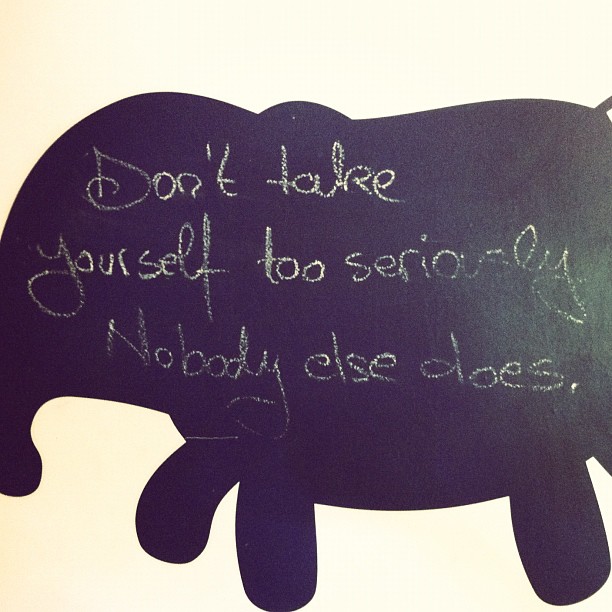 Don't take
yourself too seriously
Nobody else does.